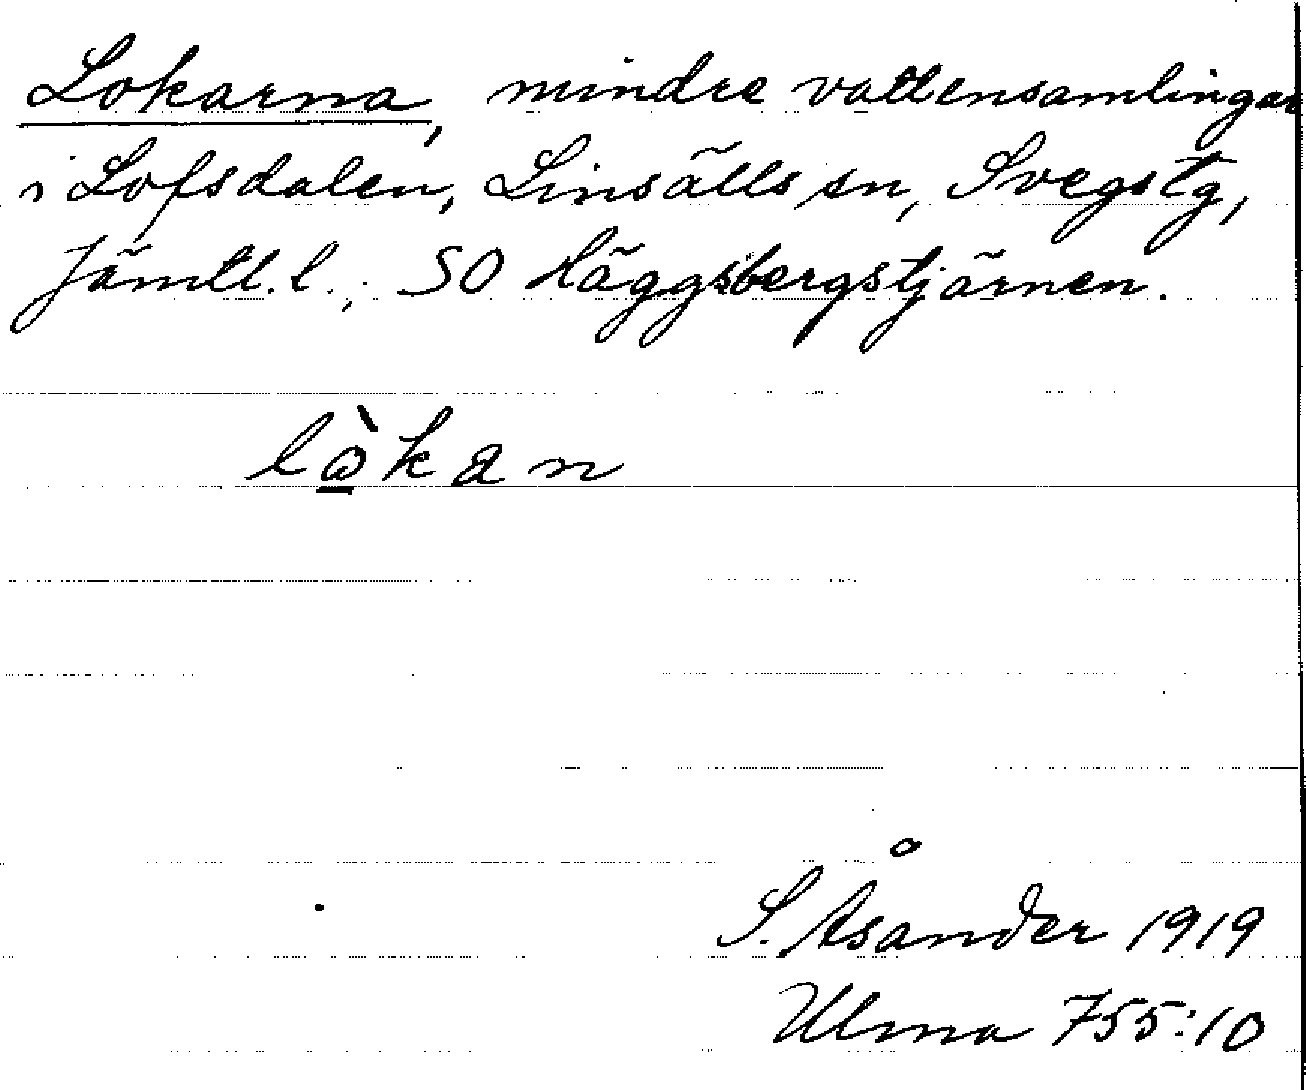 Lokarna, mindre vattensamlingar
i Lofsdalen, Linsälls sn, Svegs tg,
Jämtl. l., SO Häggsbergstjärnen.
lò̱kan
S. Åsander 1919
Ulma 755:10